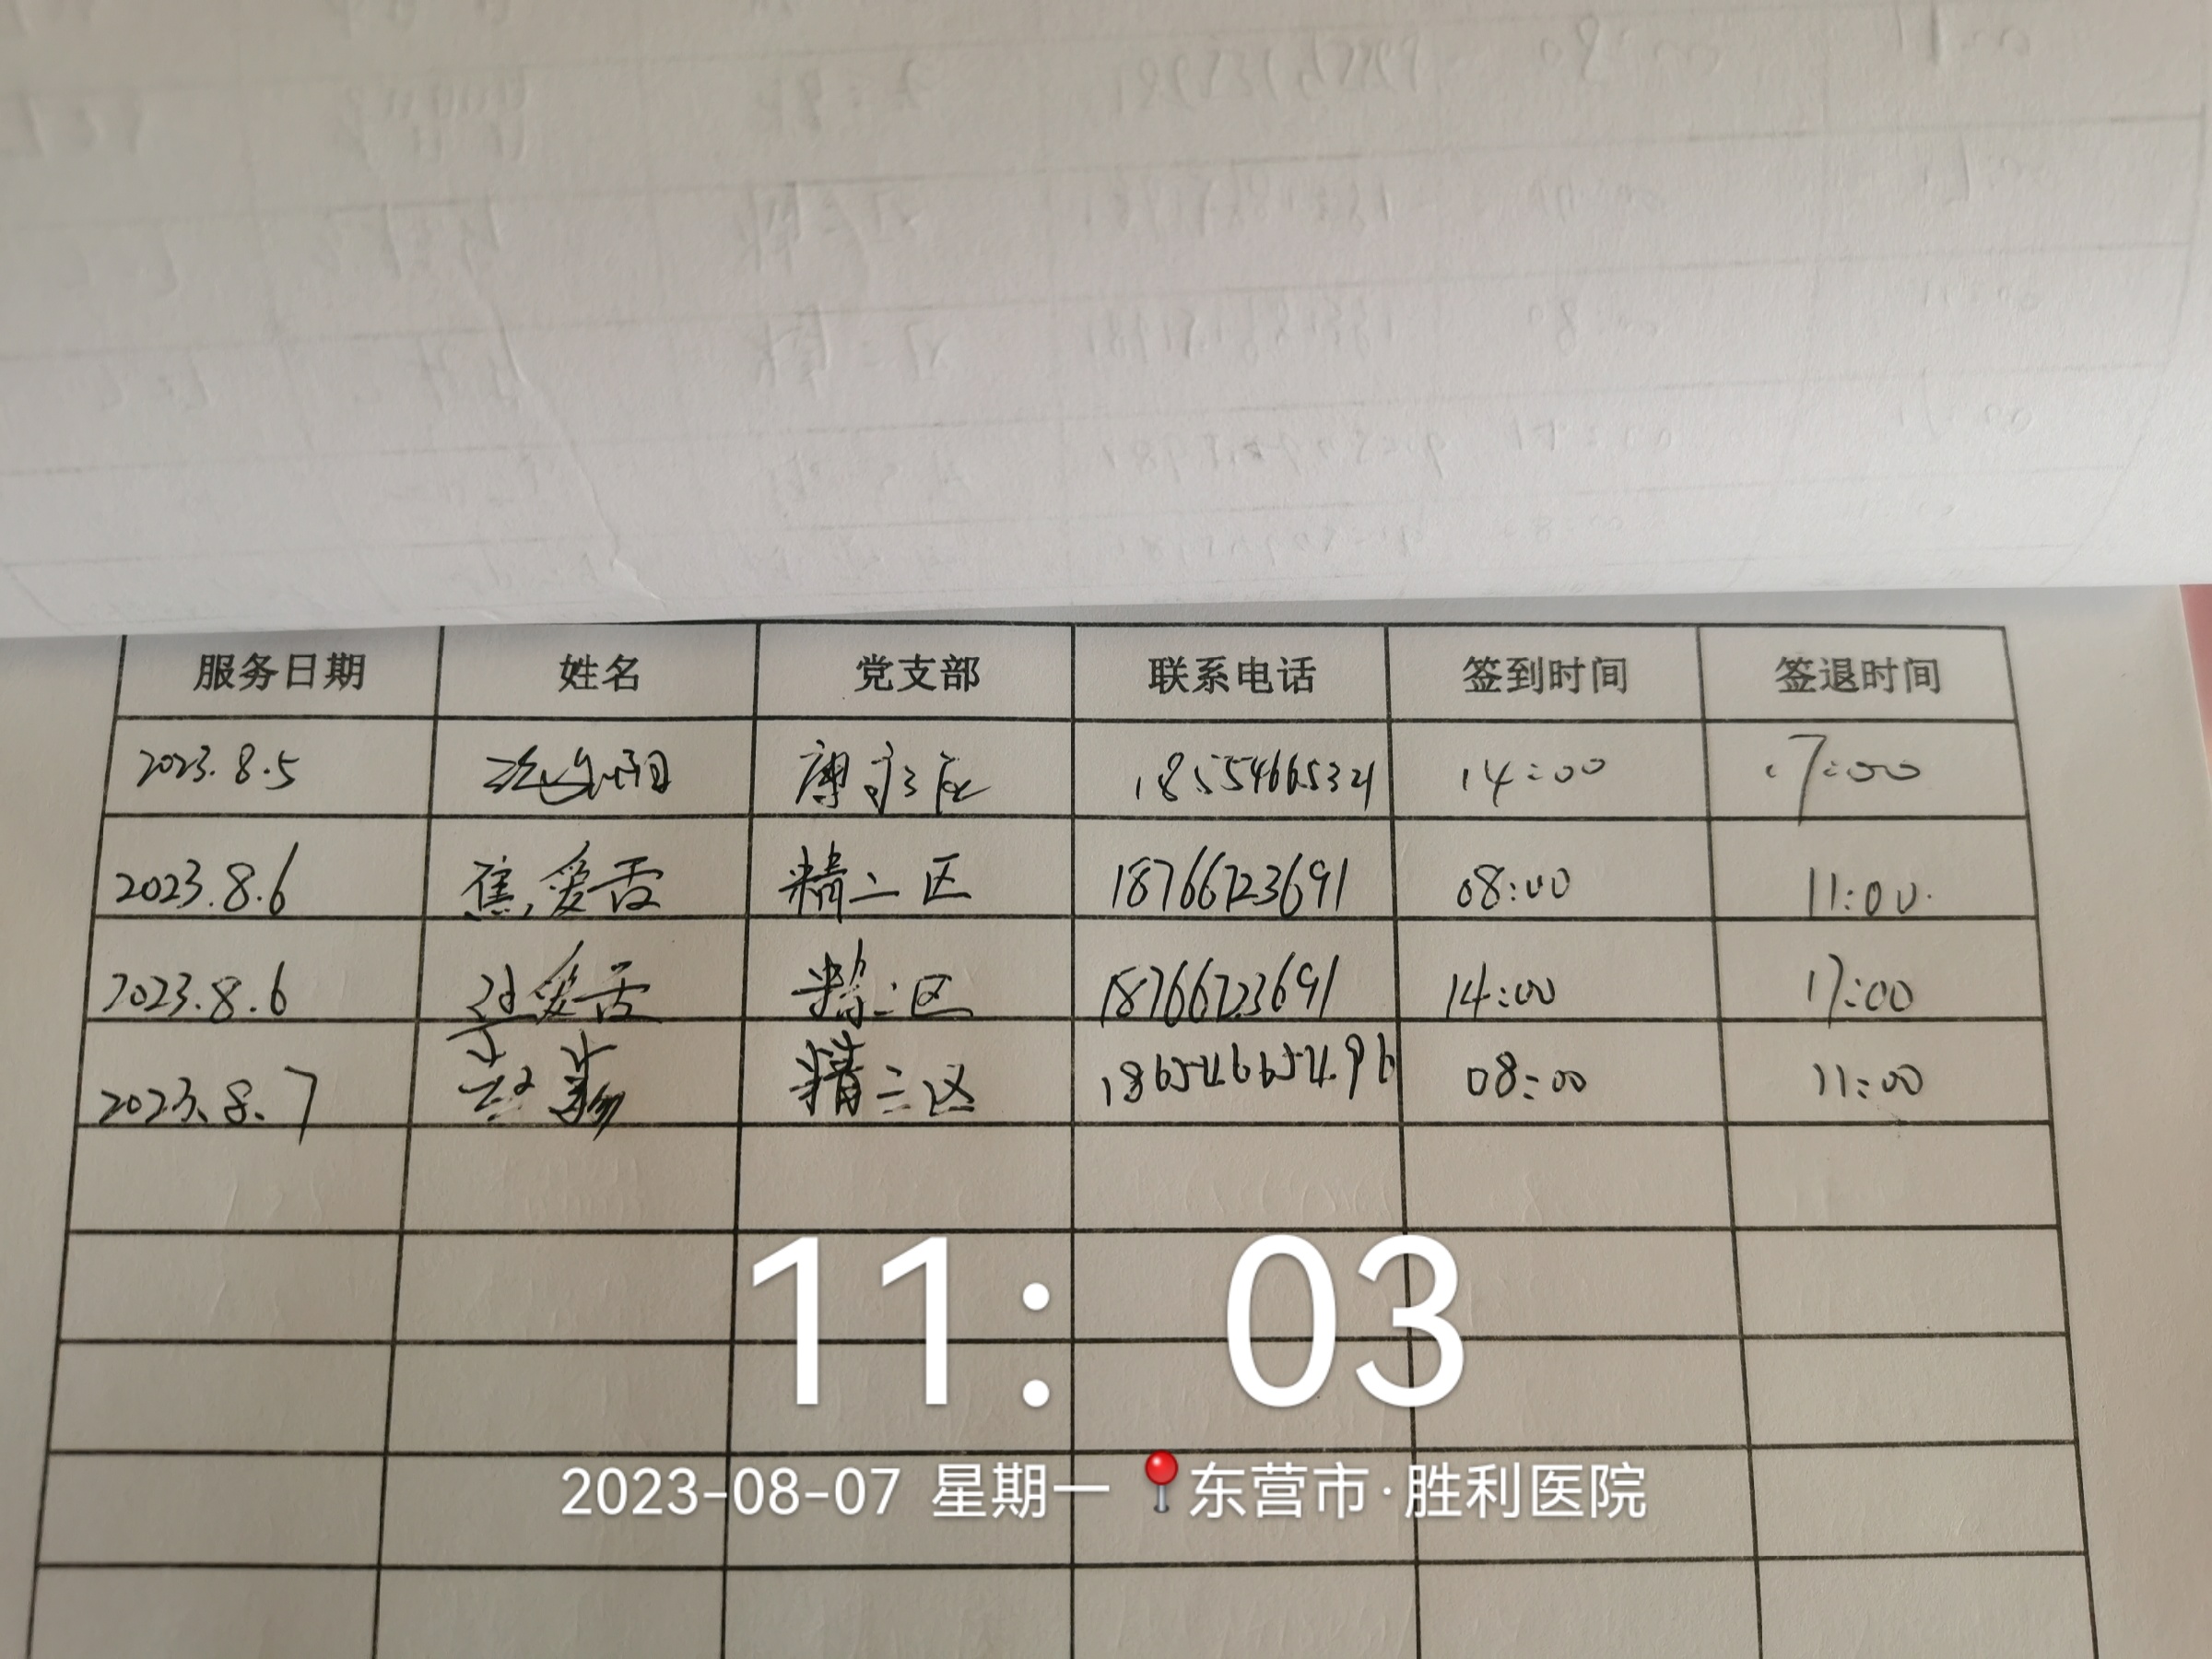 服务日期 姓名 党支部 联系电话 签到时间 签退时间
2023.8.5 18554665321 14:00 17:00
2023.8.6 焦爱霞 精二区 18766723691 08:00 11:00
2023.8.6 精二区 18766723691 14:00 17:00
2023.8.7 精二区 18654665496 08:00 11:00
11:03
2023-08-07 星期一 东营市·胜利医院